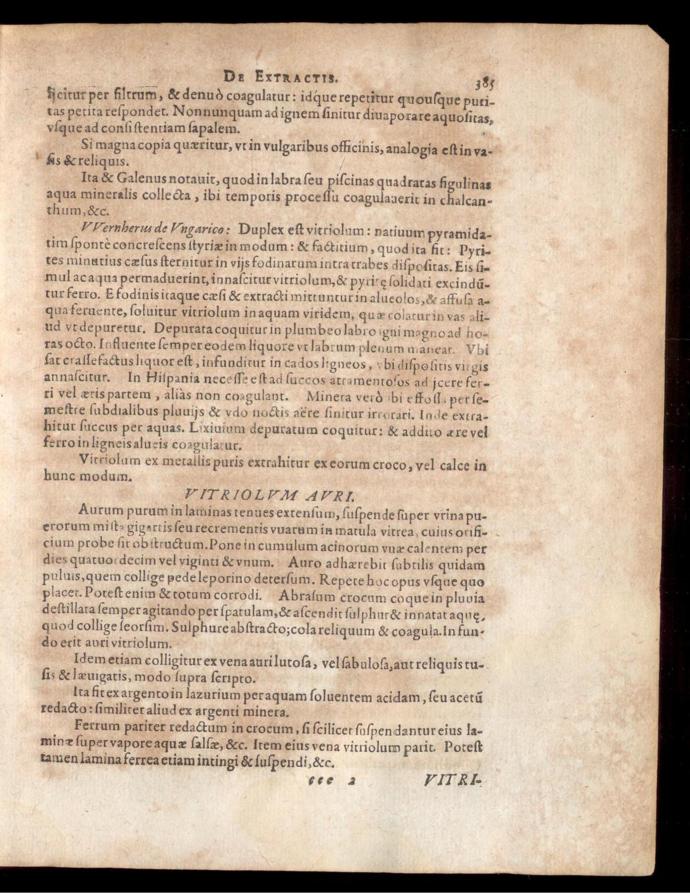 DE EXTRACTIS. 385
ijcitur per filtrum, & denuò coagulatur: idq́ue repetitur quousque puri-
tas petita respondet. Nonnunquam ad ignem sinitur diuaporare aquositas,
vsque ad consistentiam sapalem.
Si magna copia quæritur, vt in vulgaribus officinis, analogia est in va-
sis & reliquis.
Ita & Galenus notauit, quod in labra seu piscinas quadratas figulinas
aqua mineralis collecta, ibi temporis processu coagulauerit in chalcan-
thum, &c.
VVernherus de Vngarico: Duplex est vitriolum: natiuum pyramida-
tim spontè concrescens styriæ in modum: & factitium, quod ita fit: Pyri-
tes minutius cæsus sternitur in vijs fodinarum intra trabes dispositas. Eis si-
mul ac aqua permaduerint, innascitur vitriolum, & pyritę solidati excindū-
tur ferro. E fodinis itaque cæsi & extracti mittuntur in alueolos, & affusa a-
qua feruente, soluitur vitriolum in aquam viridem, quæ colatur in vas ali-
ud vt depuretur. Depurata coquitur in plumbeo labro igni magno ad ho-
ras octo. Influente semper eodem liquore vt labrum plenum maneat. Vbi
sat crassefactus liquor est, infunditur in cados ligneos, vbi dispositis virgis
annascitur. In Hispania necesse est ad succos atramentosos adijcere fer-
ri vel æris partem, aliàs non coagulant. Minera verò ibi effossa per se-
mestre subdialibus pluuijs & vdo noctis aëre sinitur irrorari. Inde extra-
hitur succus per aquas. Lixiuium depuratum coquitur: & addito ære vel
ferro in ligneis alueis coagulatur.
Vitriolum ex metallis puris extrahitur ex eorum croco, vel calce in
hunc modum.
VITRIOLVM AVRI.
Aurum purum in laminas tenues extensum, suspende super vrina pu-
erorum mista gigartis seu recrementis vuarum in matula vitrea, cuius orifi-
cium probe sit obstructum. Pone in cumulum acinorum vuæ calentem per
dies quatuordecim vel viginti & vnum. Auro adhærebit subtilis quidam
puluis, quem collige pede leporino detersum. Repete hoc opus vsque quo
placet. Potest enim & totum corrodi. Abrasum crocum coque in pluuia
destillata semper agitando per spatulam, & ascendit sulphur & innatat aquę,
quod collige seorsim. Sulphure abstracto; cola reliquum & coagula. In fun-
do erit auri vitriolum.
Idem etiam colligitur ex vena auri lutosa, vel sabulosa, aut reliquis tu-
sis & læuigatis, modo supra scripto.
Ita fit ex argento in lazurium per aquam soluentem acidam, seu acetū
redacto: similiter aliud ex argenti minera.
Ferrum pariter redactum in crocum, si scilicet suspendantur eius la-
minæ super vapore aquæ salsæ, &c. Item eius vena vitriolum parit. Potest
tamen lamina ferrea etiam intingi & suspendi, &c.
ccc 2 VITRI-